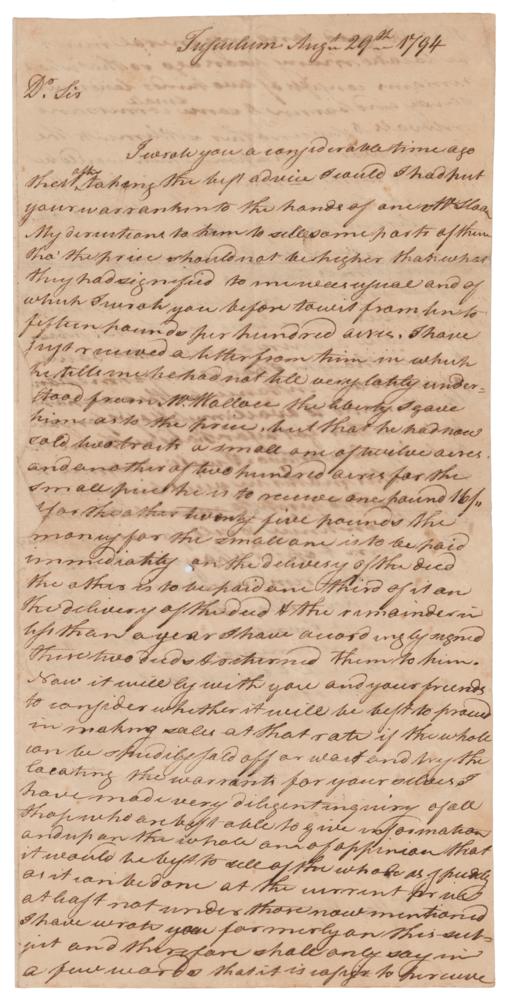 Tusculum Augt 29th 1794
Dr Sir
I wrote you a considerable time ago
that after taking the best advice I could I had put
your warrants into the hands of one Mr Sloan
My directions to him to sell some parts of them
tho' the price should not be higher than what
they had signified to me was usual and of
which I wrote you before to wit from ten to
fifteen pounds per hundred acres. I have
just received a letter from him in which
he tells me he had not till very lately under-
stood from Mr. Wallace the liberty I gave
him as to the price, but that he had now
sold two tracts a small one of twelve acres
and another of two hundred acres for the
small piece he is to receive one pound 16/
for the other twenty five pounds the
money for the small one is to be paid
immediately on the delivery of the deed
the other is to be paid one third of it on
the delivery of the deed & the remainder in
less than a year I have accordingly signed
these two deeds & returned them to him.
Now it will ly with you and your friends
to consider whether it will be best to proceed
in making sales at that rate if the whole
can be speedily sold off or wait and try the
locating the warrants for yourselves I
have made very diligent inquiry of all
those who are best able to give information
and upon the whole am of oppinion that
it would be best to sell off the whole as speedily
as it can be done at the current price
at least not under those now mentioned
I have wrote you formerly on this sub-
ject and therefore shall only say in
a few words that it is easy to perceive